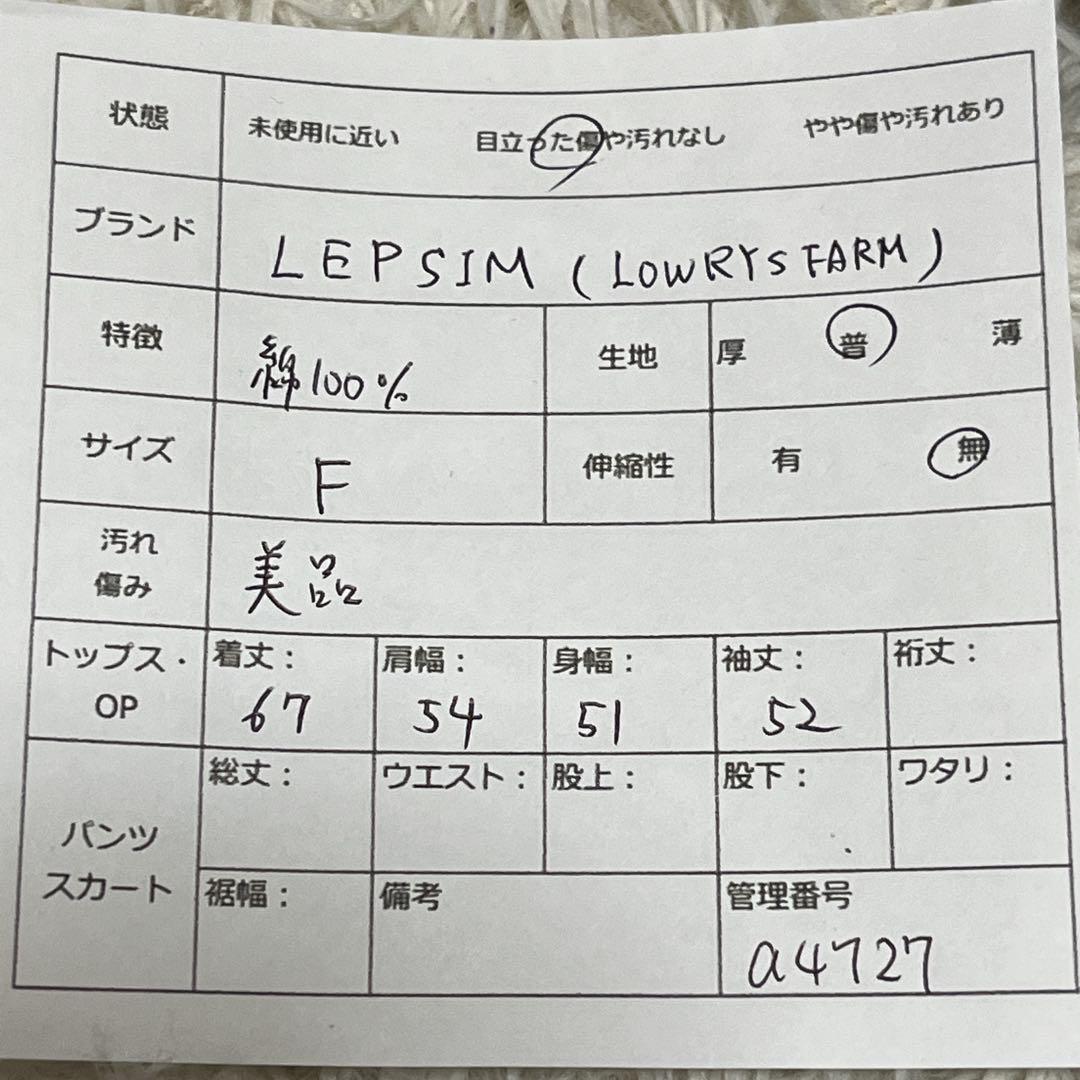 状態 未使用に近い 目立った傷や汚れなし やや傷や汚れあり
ブランド LEPSIM (LOWRYS FARM)
特徴 綿100% 生地 厚 普 薄
サイズ F 伸縮性 有 無
汚れ
傷み 美品
トップス・
OP
着丈: 肩幅: 身幅: 袖丈: 裄丈:
67 54 51 52
パンツ
スカート
総丈: ウエスト: 股上: 股下: ワタリ:
裾幅: 備考 管理番号
a4727